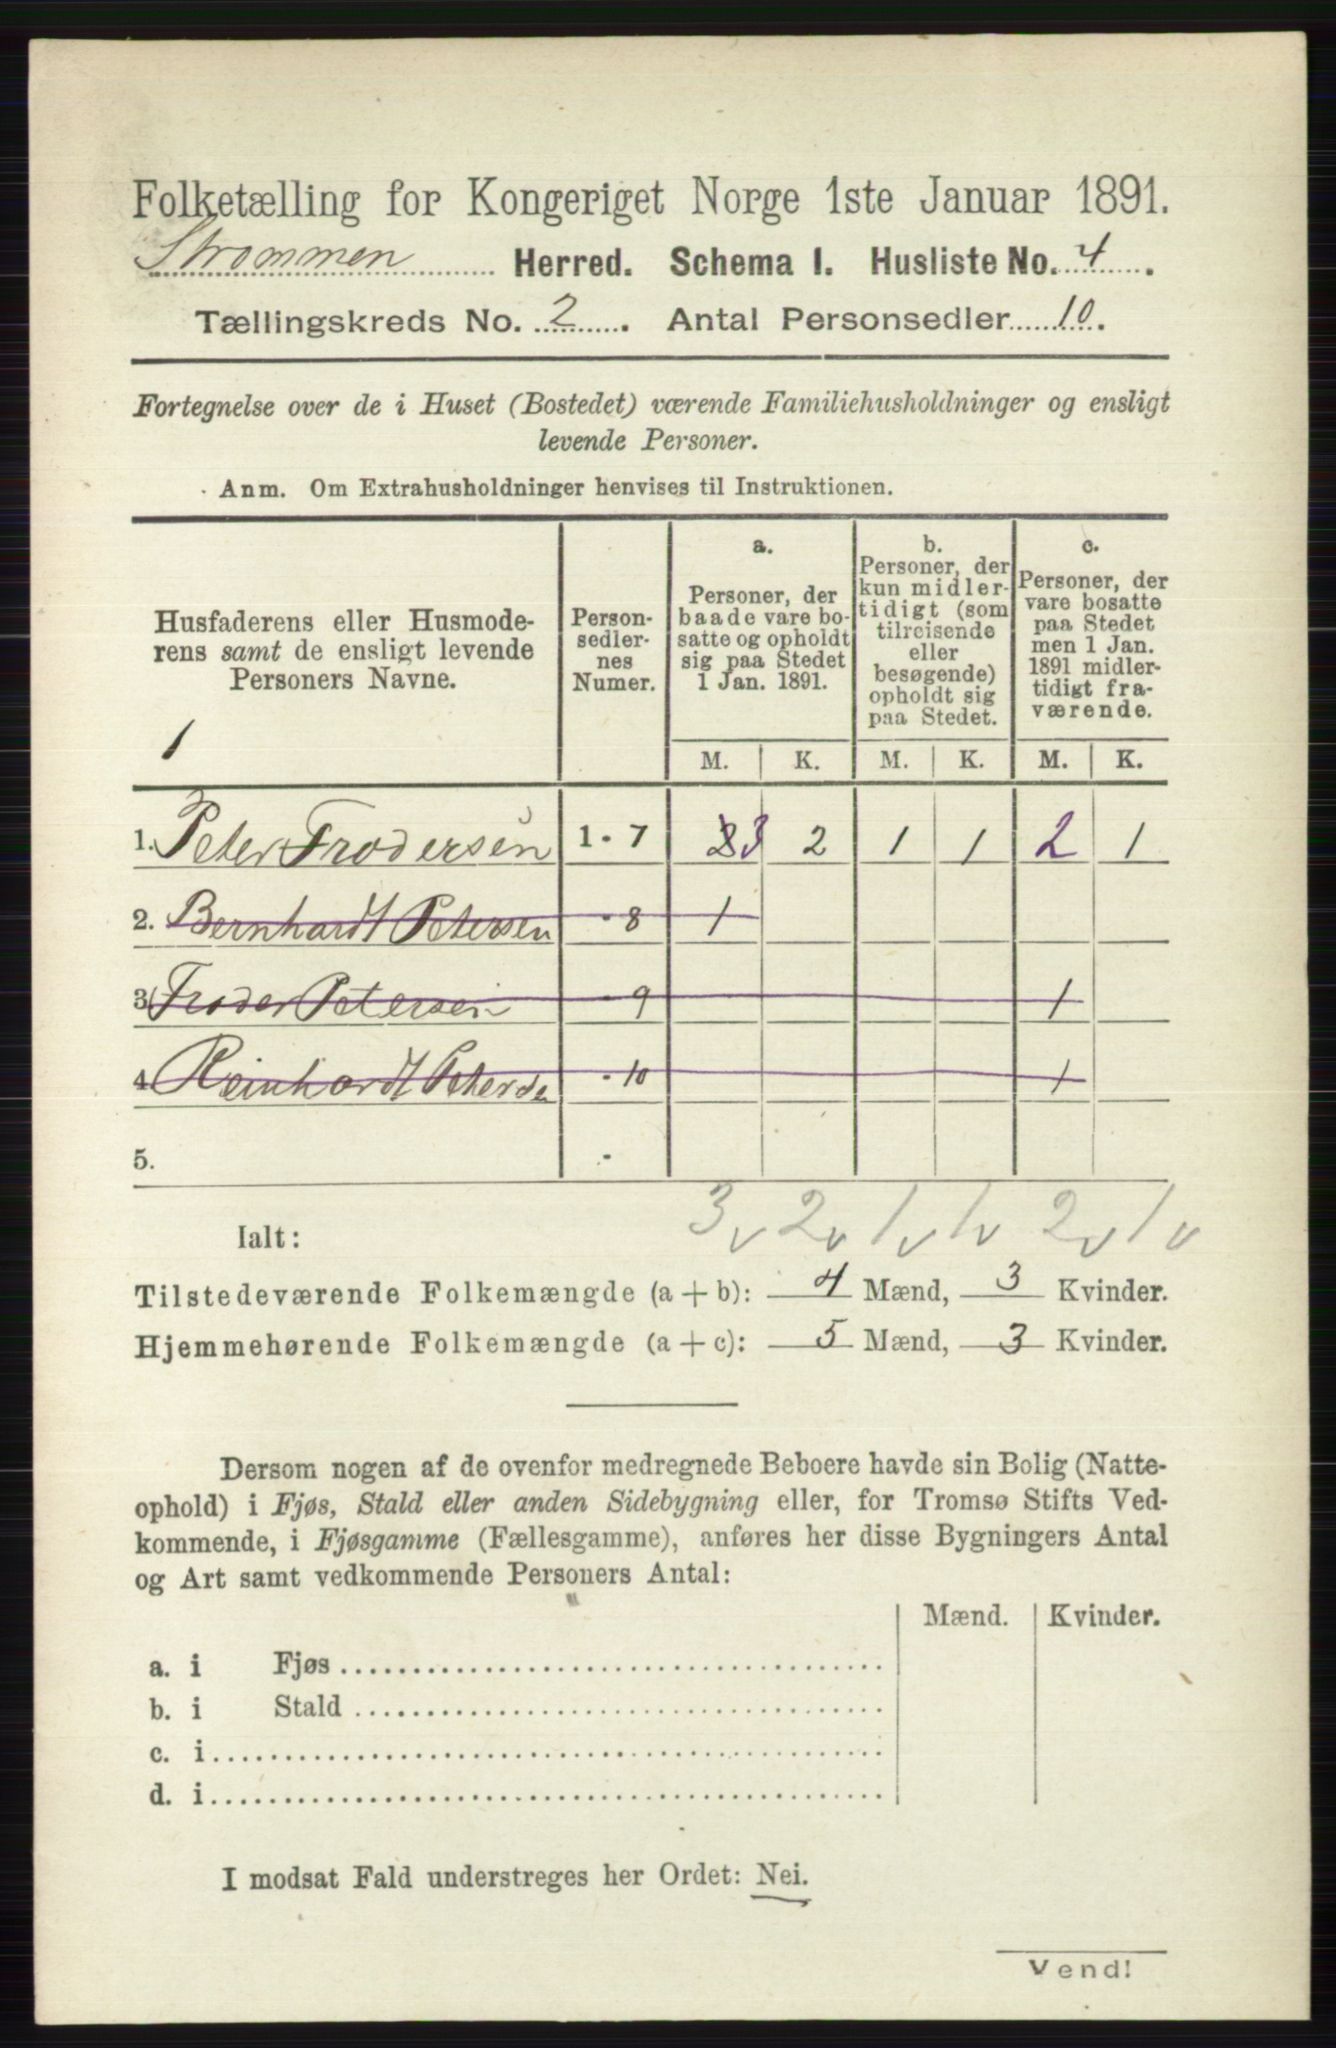 Folketælling for Kongeriget Norge 1ste Januar 1891.
Strømmen Herred. Schema I. Husliste No. 4.
Tællingskreds No. 2. Antal Personsedler 10.
Fortegnelse over de i Huset (Bostedet) værende Familiehusholdninger og ensligt
levende Personer.
Anm. Om Extrahusholdninger henvises til Instruktionen.
Husfaderens eller Husmode-
rens samt de ensligt levende
Personers Navne.
1
Person-
sedler-
nes
Numer.
a.
Personer, der
baade vare bo-
satte og opholdt
sig paa Stedet
1 Jan. 1891.
b.
Personer, der
kun midler-
tidigt (som
tilreisende
eller
besøgende)
opholdt sig
paa Stedet.
c.
Personer, der
vare bosatte
paa Stedet
men 1 Jan.
1891 midler-
tidigt fra-
værende.
M. K. M. K. M. K.
1. Peter Frodersen 1 - 7 3 2 1 1 2 1
2. Bernhardt Petersen - 8 1
3. Froder Petersen - 9 1
4. Reinhardt Peterse - 10 1
5. -
Ialt: 3 2 1 1 2 1
Tilstedeværende Folkemængde (a + b): 4 Mænd, 3 Kvinder.
Hjemmehørende Folkemængde (a + c): 5 Mænd, 3 Kvinder.
Dersom nogen af de ovenfor medregnede Beboere havde sin Bolig (Natte-
ophold) i Fjøs, Stald eller anden Sidebygning eller, for Tromsø Stifts Ved-
kommende, i Fjøsgamme (Fællesgamme), anføres her disse Bygningers Antal
og Art samt vedkommende Personers Antal:
Mænd. Kvinder.
a. i Fjøs
b. i Stald
c. i
d. i
I modsat Fald understreges her Ordet: Nei.
Vend!